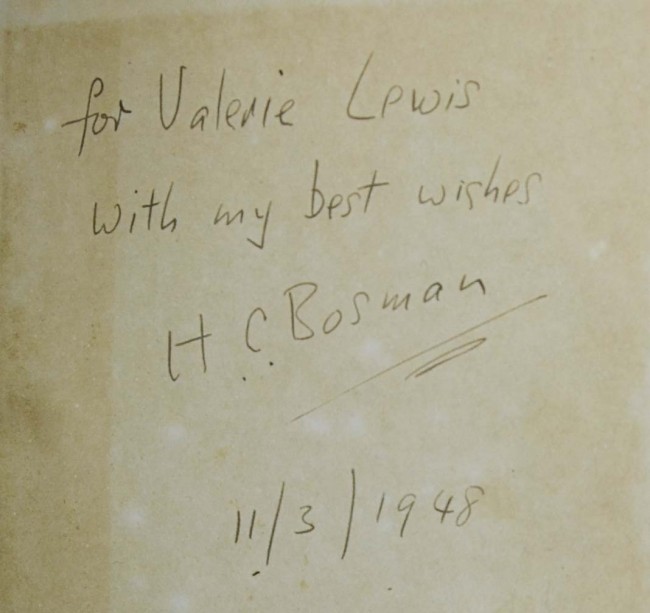 for Valerie Lewis
with my best wishes
H.C. Bosman
11/3/1948